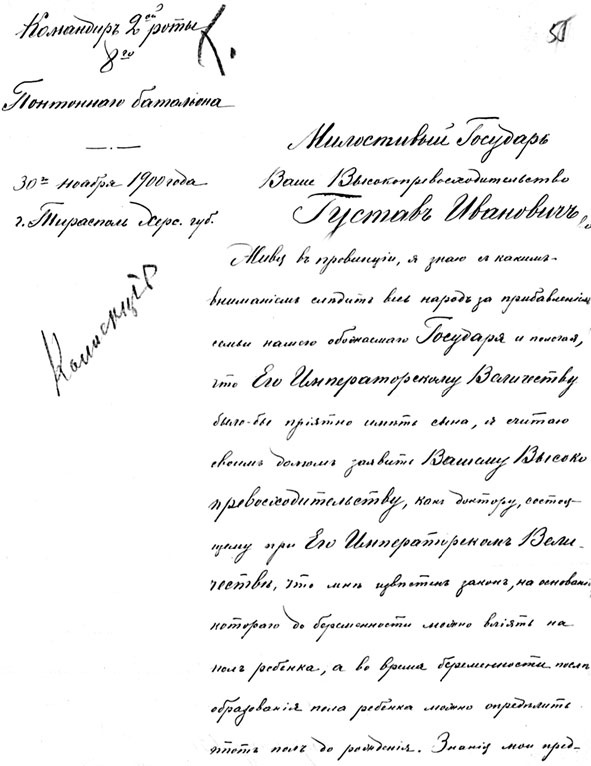 Командиръ 2ой роты
8го
Понтоннаго баталіона
30го ноября 1900 года
г. Тирасполь Херс. губ.
55
Милостивый Государь
Ваше Высокопревосходительство
Густавъ Ивановичъ,
Живя въ провинціи, я знаю съ какимъ
вниманіемъ слѣдитъ весь народъ за прибавленіе
семьи нашего обожаемаго Государя и полагая,
что Его Императорскому Величеству
было-бы пріятно имѣть сына, я считаю
своимъ долгомъ заявить Вашему Высоко
превосходительству, какъ доктору, состоя
щему при Его Императорскомъ Вели-
чествѣ, что мнѣ извѣстенъ законъ, на основані
котораго до беременности можно вліять на
полъ ребенка, а во время беременности послѣ
образованія пола ребенка можно опредѣлить
этотъ полъ до рожденія. Знанія мои пред-